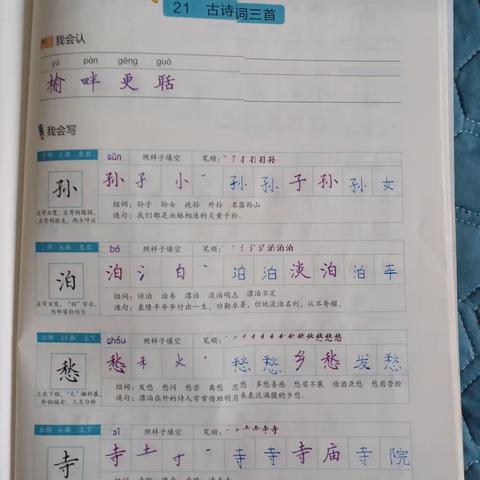 21 古诗词三首
我会认
yú pàn gēng guō
榆 畔 更 聒
我会写
子部 6画 左右 sūn 照样子填空 笔顺:
孙 孙 孑 小 孙 孙 子 孙 孙 女
组词:孙子 孙女 徒孙 外孙 名落孙山
造句:我们都是血脉相连的炎黄子孙。
左右 bó 照样子填空 笔顺:
泊 泊 氵 白 泊 泊 淡 泊 泊 车
组词:停泊 泊车 漂泊 淡泊明志 漂泊不定
造句:袁隆平爷爷付出一生,功勋卓著,但他淡泊名利,从不夸耀。
心部 13画 上下 chóu 照样子填空 笔顺:
愁 愁 禾 火 愁 愁 乡 愁 发 愁
组词:发愁 愁闷 愁苦 离愁 悲愁 多愁善感 愁眉不展 借酒浇愁 愁眉苦脸
造句:漂泊在外的诗人常常借助明月来表达满腹的乡愁。
6画 上下 sì 照样子填空 笔顺:
寺 寺 土 寸 寺 寺 寺 庙 寺 院